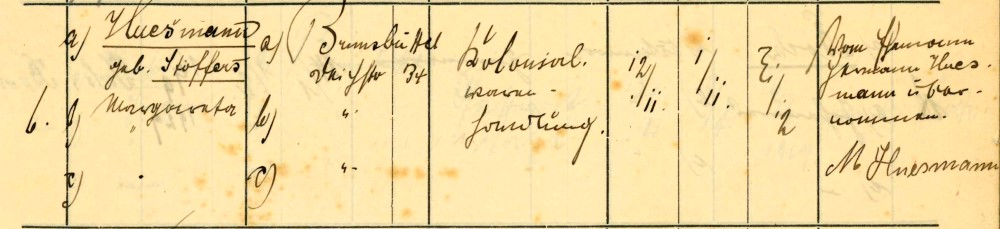 6. a) Huesmann
geb. Stoffers
b) Margareta
"
c) "
a) Brunsbüttel
Deichstr 34
b) "
c) "
Kolonial-
waren-
handlung.
12/11.
1/11.
3./12
Vom Ehemann
Hermann Hues-
mann über-
nommen.
M Huesmann